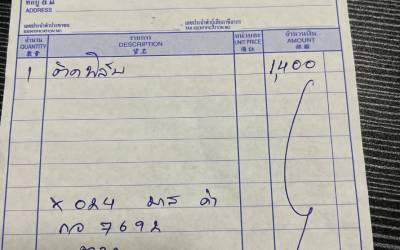 ที่อยู่
ADDRESS
เลขประจำตัวประชาชน
IDENTIFICATION NO.
เลขประจำตัวผู้เสียภาษีอากร
TAX IDENTIFICATION NO.
จำนวน รายการ หน่วยละ จำนวนเงิน
QUANTITY DESCRIPTION UNIT PRICE AMOUNT
數量 貨名 價值 銀額
1 ติดฟิล์ม 1,400
x 024 มาส ดำ
กอ 7692